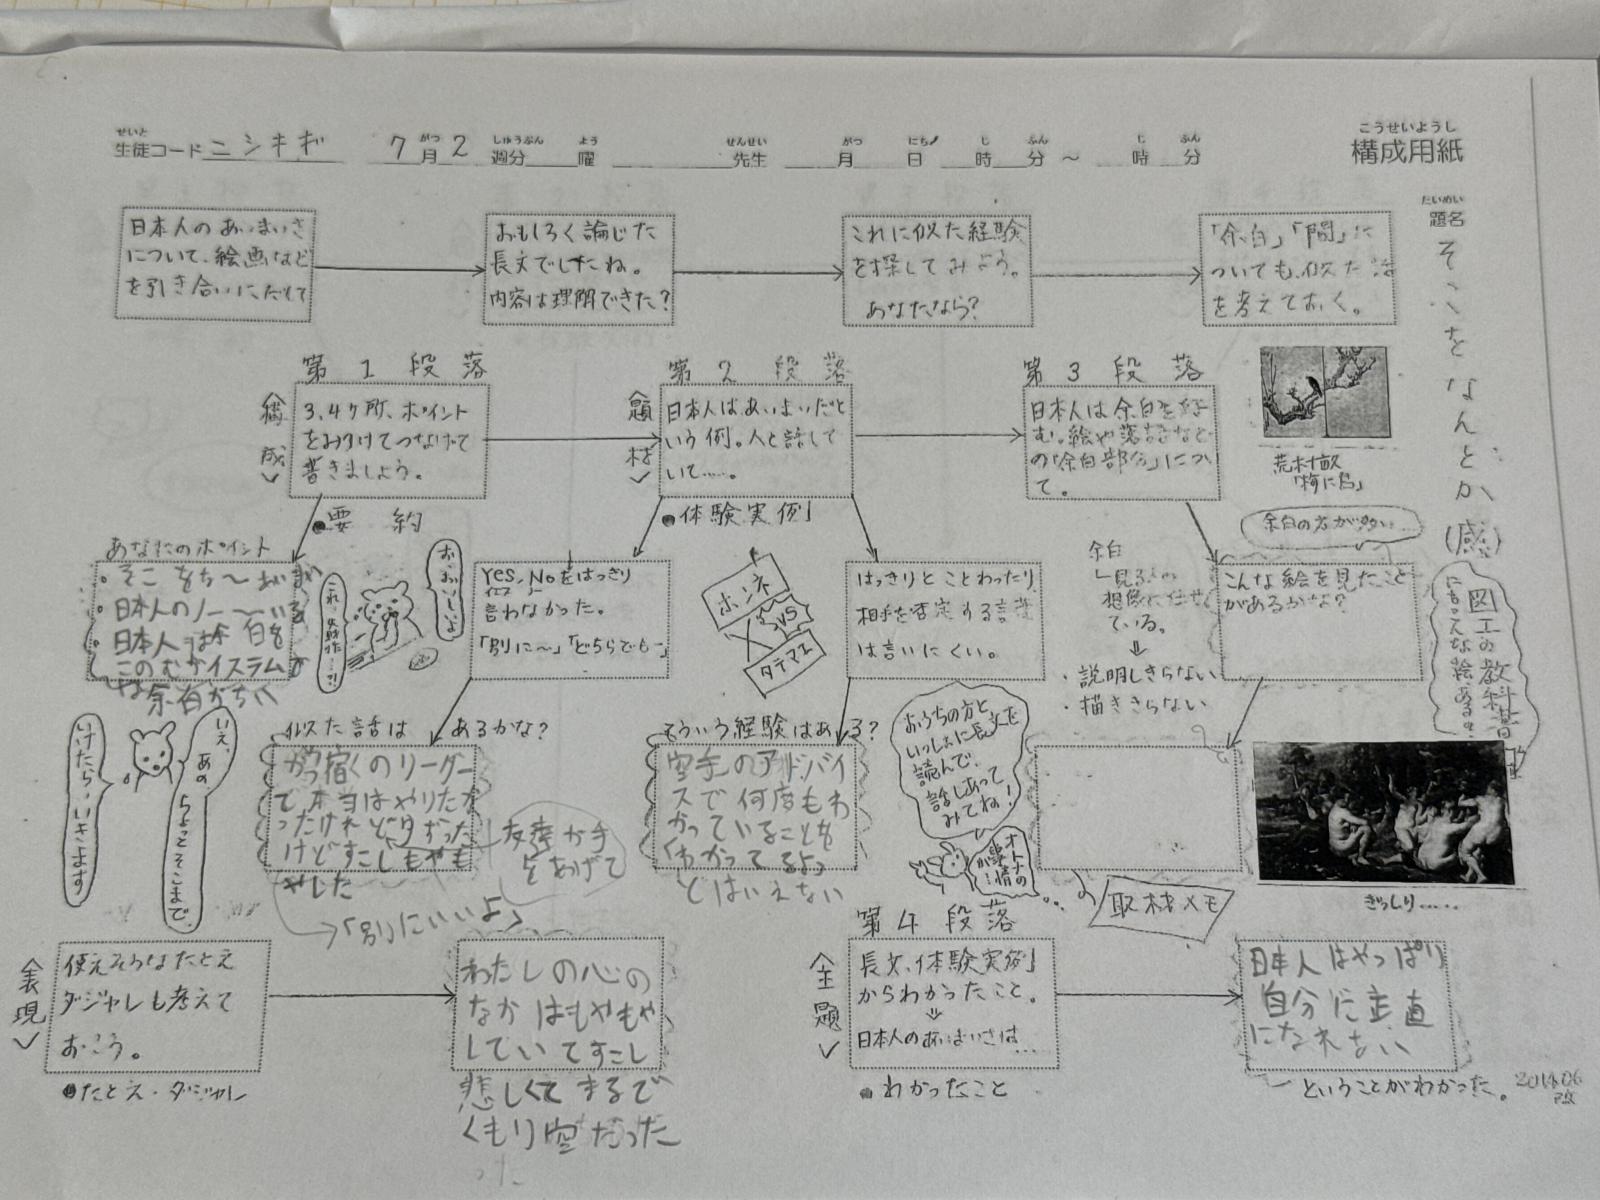 せいと
生徒コード ニシキギ 7月2週分 曜 先生 月 日 時 分 ～ 時 分
がつ しゅうぶん よう せんせい がつ にち じ ふん じ ふん
こうせいようし
構成用紙
だいめい
題名
そこをなんとか(感)
日本人のあいまいさ
について、絵画など
を引き合いにだして
おもしろく論じた
長文でしたね。
内容は理解できた？
これに似た経験
を探してみよう。
あなたなら？
「余白」「間」に
ついても、似た話
を考えておく。
第1段落
〈構成〉
3、4ヶ所、ポイント
をみつけてつなげて
書きましょう。
●要約
第2段落
〈題材〉
日本人はあいまいだと
いう例。人と話して
いて……。
●体験実例
第3段落
日本人は余白を好
む。絵や落語など
の「余白部分」につい
て。
「梅に烏」
余白の方が多い…
あなたのポイント
日本人のノー～いる
余白がちい
お、おいしいよ
これ、失敗作…?!
Yes、Noをはっきり
イエス ノー
言わなかった。
「別に～」「どちらでも～」
ホンネ
VS
タテマエ
はっきりとことわったり、
相手を否定する言葉
は言いにくい。
余白
見る人の
想像に任せ
ている。
・説明しきらない
・描ききらない
こんな絵を見たこと
があるかな？
図工の教科書
にもこんな絵あるぞ
いえ、あの、ちょっとそこまで
いけたら、いきます
似た話は あるかな？
がっ宿のリーダー
で本当はやりたか
ったけれど
けどすこしもやも
やした
友達が手
をあげて
「別にいいよ」
そういう経験はある？
空手のアドバイ
スで何度もわ
かっていることを
「わかってるよっ
とはいえない
おうちの方と
いっしょに長文を
読んで、
話しあって
みてね！
オトナの
事情
が…
取材メモ
ぎっしり……
〈表現〉
使えそうなたとえ
ダジャレも考えて
おこう。
●たとえ・ダジャレ
わたしの心の
なかはもやもや
していてすこし
悲しくてまるで
くもり空だった
第4段落
〈主題〉
長文、体験実例
からわかったこと。
日本人のあいまいさは…
●わかったこと
日本人はやっぱり
自分に正直
になれない
ーということがわかった。
2014.06
改